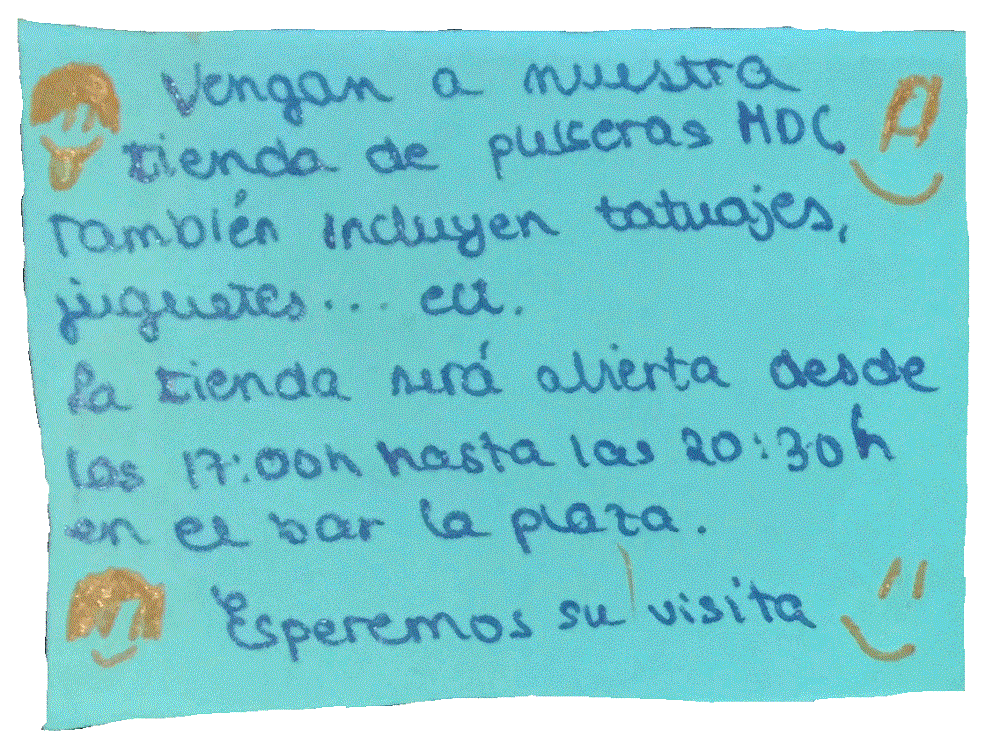 Vengan a nuestra
tienda de pulseras MDC.
También incluyen tatuajes,
juguetes... ect.
La tienda será abierta desde
las 17:00h hasta las 20:30h
en el bar la plaza.
Esperemos su visita